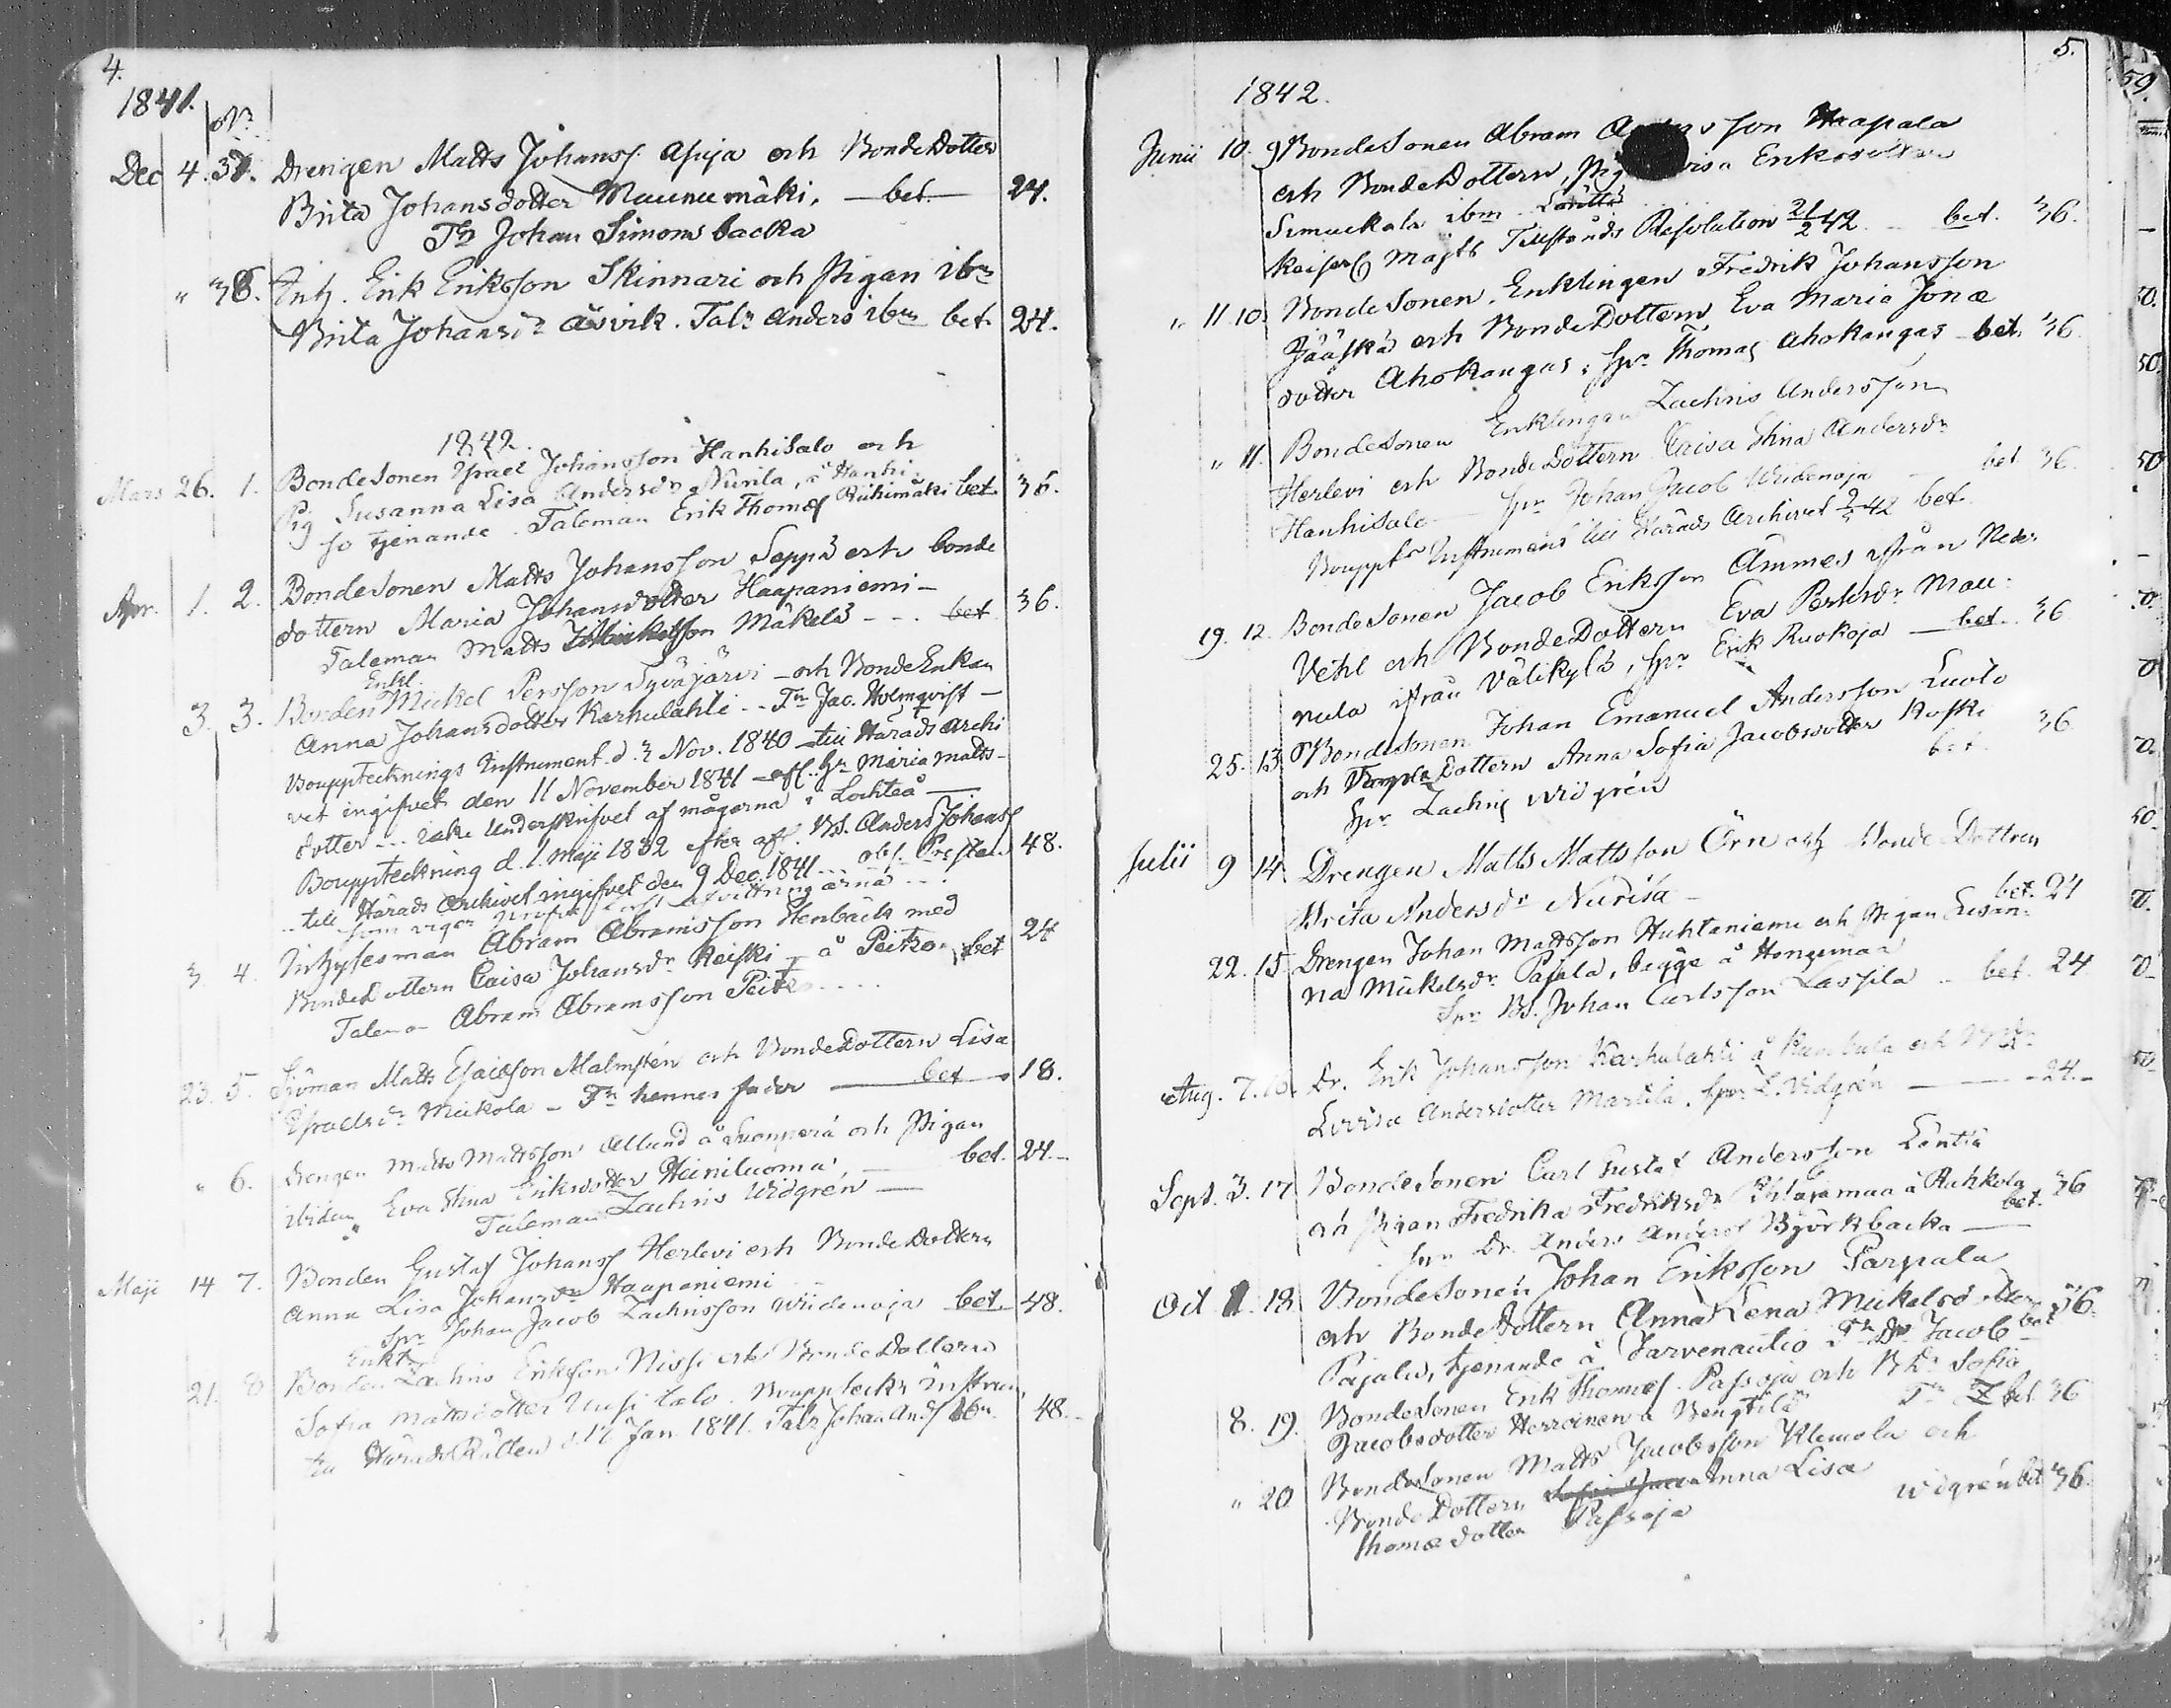 4.
1841.
No
Dec 4. 37. Drengen Matts Johanss. och BondeDotter
Brita Johansdotter Maunumäki, — bet. 24.
Tn Johan Simonsbacka
" 38. Inh. Erik Eriksson Skinnari och Pigan ibm
Brita Johansdr Åsvik. Taln Anders ibm bet. 24.
1842.
Mars 26. 1. BondeSonen Israel Johansson Hanhisalo och
Pig Susanna Lisa Andersdr Nurila, å Hanhi-
so tjenande. Taleman Erik Thomæs Riihimäki bet. 36.
Apr. 1. 2. BondeSonen Matts Johansson Seppä och bonde
dottern Maria Johansdotter Haapaniemi —
Taleman Matts Michelsson Mäkelä - - - bet 36.
Enkl.
3. 3. Bonden Mickel Persson Syväjärvi — och BondeEnkan
Anna Johansdotter Karhulahti - - Tn Jac. Holmqvist —
Bouppteknings Instrument d. 3 Nov. 1840 — till Härads archi
vet ingifvet den 11 November 1841 — afl. Hu Maria Matts-
dotter - - - icke Underskrifvet af mågarna i Lochteå —
Bouppteckning d. 1 Maji 1832 efter afl. BS. Anders Johanss
- - till Härads Archivet ingifvet den 9 Dec. 1841 - - - obs. Presten 48.
som viger afvittringarna - - -
3 4. Inhysesman Abram Abramsson Stenbäck med
BondeDottern Caisa Johansdr Keiski — å Peitso bet 24
Talem Abram Abramsson Peitso - - - -
23. 5. Sjöman Matts Esaiæson Malmstén och BondeDottern Lisa
Israelsdr Mickola — Tn hennes fader — bet 18.
" 6. Drengen Matts Mattsson Allund å Snoupperä och Pigan
ibidem Eva Stina Eriksdotter Heiniluoma, — bet. 24.—
Taleman Zachris Widgrén —
Maji 14 7. Bonden Gustaf Johanss Herlevi och BondeDottern
Anna Lisa Johansdr Haapaniemi
Spr Johan Jacob Zachrisson Wiidenoja bet. 48.
Enkl
21. 8 Bonden Zachris Eriksson Nissi och BondeDottern
Sofia Mattsdotter Uusitalo. Boupptecks Instrum
fra HäradsRätten d. 12 Jan 1841. Taln Johan Ands ibm. 48.
5.
1842.
Junii 10. 9 BondeSonen Abram son Haapala
och BondeDottern, Eriksdotter
Simuckala ibm Länttä
Keiserl Majts Tillstånds Resolution 21/2 42. - - bet. 36.
" 11 10. BondeSonen, Enklingen Fredrik Johansson
Jääskä och BondeDottern Eva Maria Jonæ
dotter Ahokangas, Spr. Thomas Ahokangas — bet. 36
" 11. BondeSonen Enklingen Zachris Andersson
Herlevi och BondeDottern Caisa Stina Andersdr
Hanhisalo — Spr Johan Jacob Wiidenoja bet 36.
Bouppts Instrument till Härads Archivet 9/5 42 bet
19. 12. BondeSonen Jacob Eriksson Ämmes ifrån Neder
Vetil och BondeDottern Eva Persdr Mau-
nula ifrån Välikylä, Spr Erik Ruokoja — bet. 36
25. 13. BondeSonen Johan Emanuel Andersson Luoto
och Dottern Anna Sofia Jacobsdotter Koski 36
Spr Zachris Widgrén bet.
Julii 9 14. Drengen Matts Mattsson Örn och BondeDottren
Brita Andersdr Nurila — bet. 24
22. 15. Drengen Johan Mattsson Huhtaniemi och Pigan Susan-
na Mickelsdr Pajala, begge å Hongimaa
Spr BS. Johan Carlsson Lassila - - bet. 24
Aug. 7. 16. Dr. Erik Johansson Karhulahti å och
Lovisa Andersdotter Martila, Spr Z. Widgrén — 24.—
Sept. 3. 17 BondeSonen Carl Gustaf Andersson Länttä
och Pigan Fredrika Fredriksdr å Ruhkola bet. 36
Spr Dr. Anders Anderss Björkbacka —
Oct 1. 18. BondeSonen Johan Eriksson Parpala
och BondeDottern Anna Lena Mickelsdotter
Pajala, tjenande å Jarvenautio Tn Dr Jacob bet 36.
8. 19. BondeSonen Erik Thomæs. Passoja och BDr Sofia
Jacobsdotter Herronen å Bengtilä Tn Z bet 36
" 20. BondeSonen Matts Jacobsson Klemola och
BondeDottern Anna Lisa
Thomædotter Passoja Widgrén bet 36.
59.